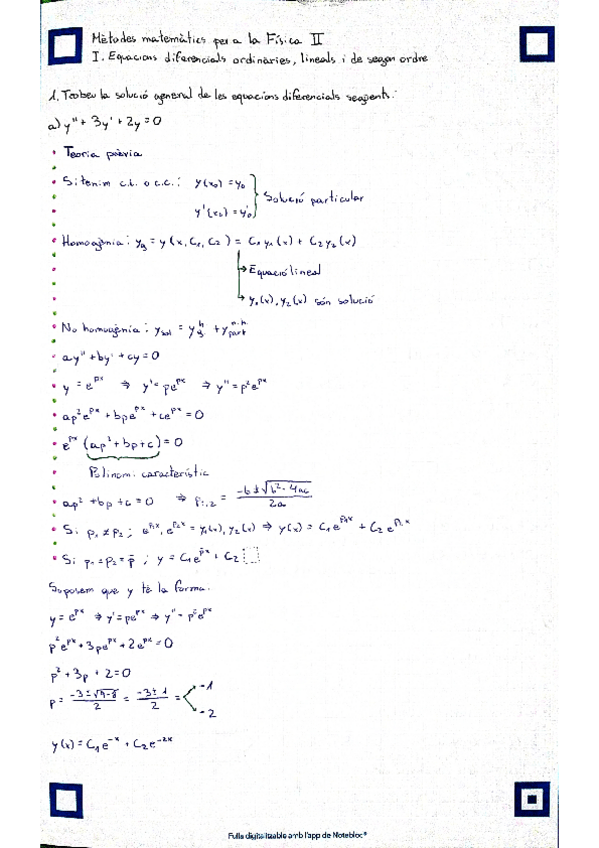 Mètodes matemàtics per a la Física II
I. Equacions diferencials ordinàries, lineals i de segon ordre
1. Trobeu la solució general de les equacions diferencials següents:
a) y'' + 3y' + 2y = 0
• Teoria prèvia
• Si tenim c.i. o c.c.: y(x₀) = y₀
y'(x₀) = y₀' } Solució particular
• Homogènia: y_g = y(x, C₁, C₂) = C₁y₁(x) + C₂y₂(x)
→ Equació lineal
→ y₁(x), y₂(x) són solució
• No homogènia: y_sol = y_g^h + y_part^n.h.
• ay'' + by' + cy = 0
• y = e^px ⇒ y' = pe^px ⇒ y'' = p²e^px
• ap²e^px + bpe^px + ce^px = 0
• e^px (ap² + bp + c) = 0
• Polinomi característic
• ap² + bp + c = 0 ⇒ p₁,₂ = (-b ± √(b² - 4ac)) / 2a
• Si p₁ ≠ p₂; e^p₁x, e^p₂x = y₁(x), y₂(x) ⇒ y(x) = C₁e^p₁x + C₂e^p₂x
• Si p₁ = p₂ = p̄; y = C₁e^p̄x + C₂
Suposem que y té la forma:
y = e^px ⇒ y' = pe^px ⇒ y'' = p²e^px
p²e^px + 3pe^px + 2e^px = 0
p² + 3p + 2 = 0
p = (-3 ± √(9-8)) / 2 = (-3 ± 1) / 2 = -1
-2
y(x) = C₁e^-x + C₂e^-2x
Fulla digitalitzable amb l'app de Notebloc®